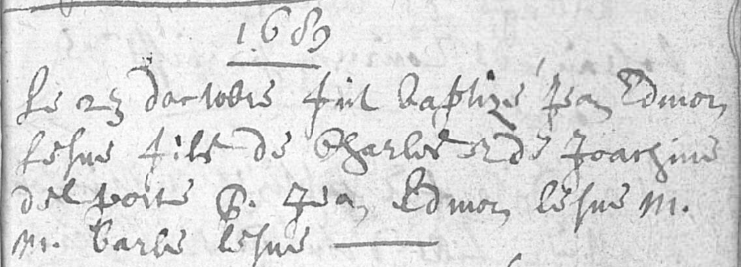 1689
Le 23 d'octobre fut baptize Jean Edmon
lesne fils de Charles et de Joachine
delporte P. Jean Edmon lesne M.
m. barbe lesne